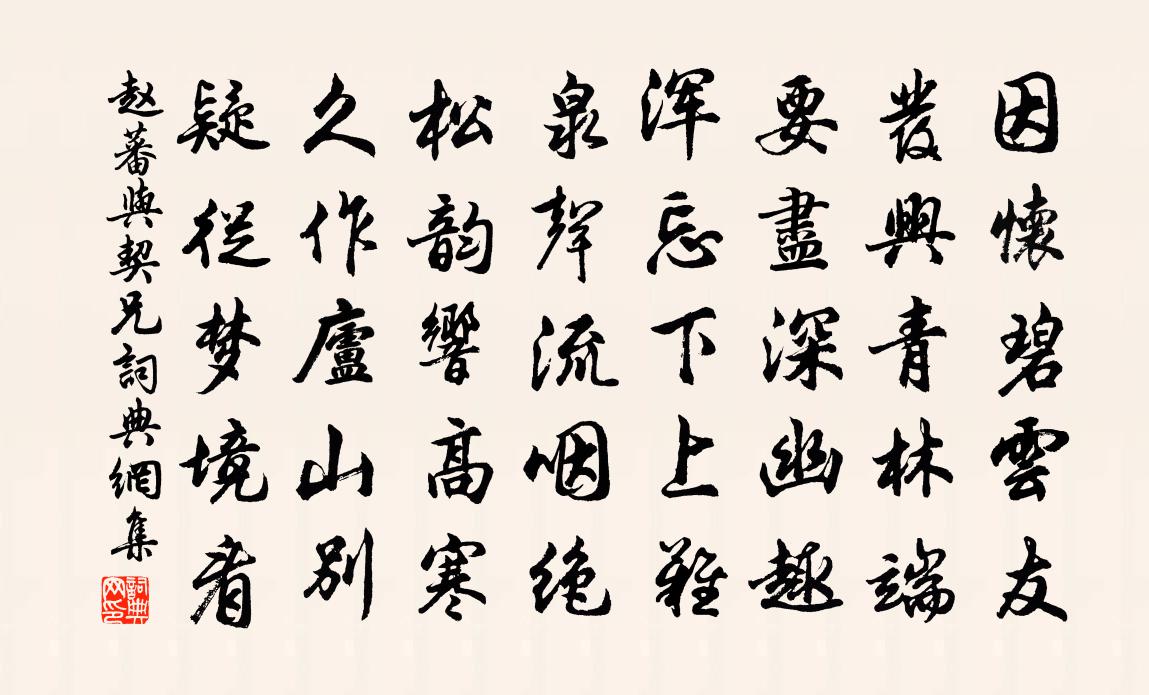 因懷碧雲友
發興青林端
要盡深幽趣
浑忘下上難
泉聲流咽絕
松韵響高寒
久作廬山別
疑從梦境看
赵蕃與契兄詞典網集
詞典网印